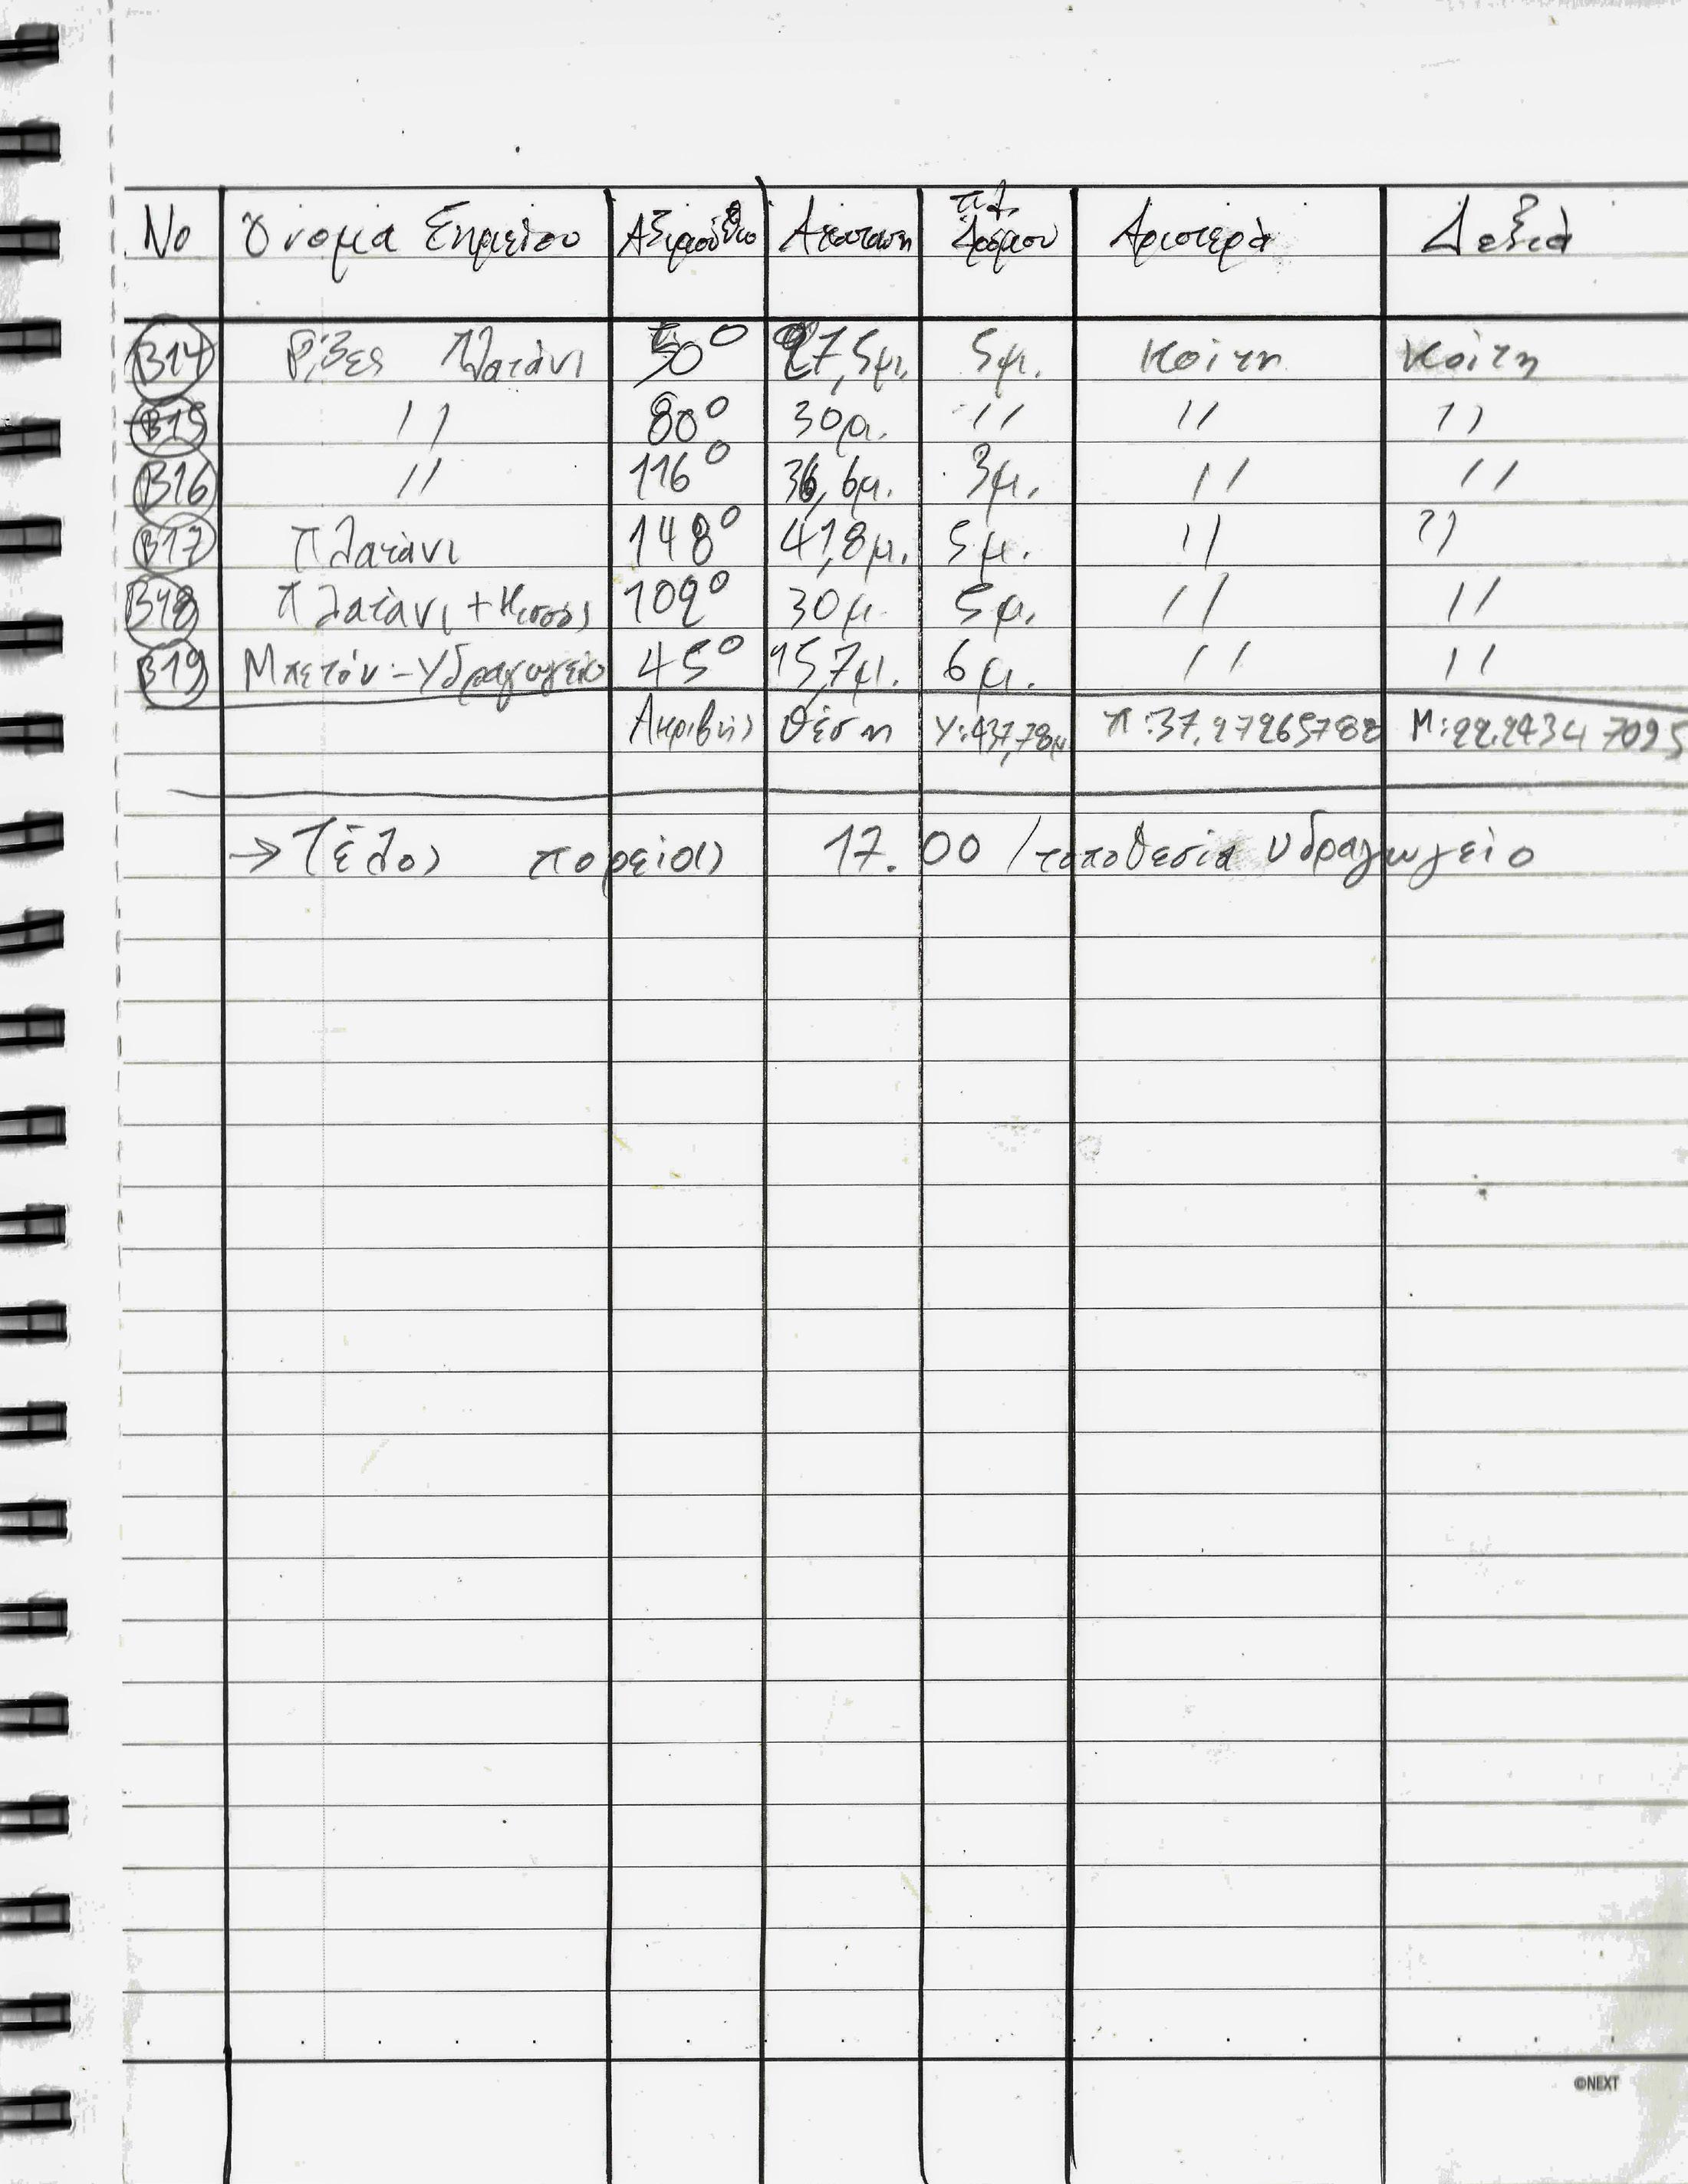 No Όνομα Σημείου Αζιμούθιο Απόσταση πλ. Δρόμου Αριστερά Δεξιά
B14 Ρίζες Πλατάνι 50° 27,5μ. 5μ. Κοίτη Κοίτη
B15 // 80° 30μ. // // //
B16 // 116° 36,6μ. 3μ. // //
B17 Πλατάνι 148° 41,8μ. 5μ. // //
B18 Πλατάνι + Κισσός 102° 30μ. 5μ. // //
B19 Μπετόν - Υδραγωγείο 45° 15,7μ. 6μ. // //
Ακριβής θέση Υ:437,78μ Π:37,27265788 Μ:22.24347095
→ Τέλος πορείας 17.00 / τοποθεσία υδραγωγείο
©NEXT